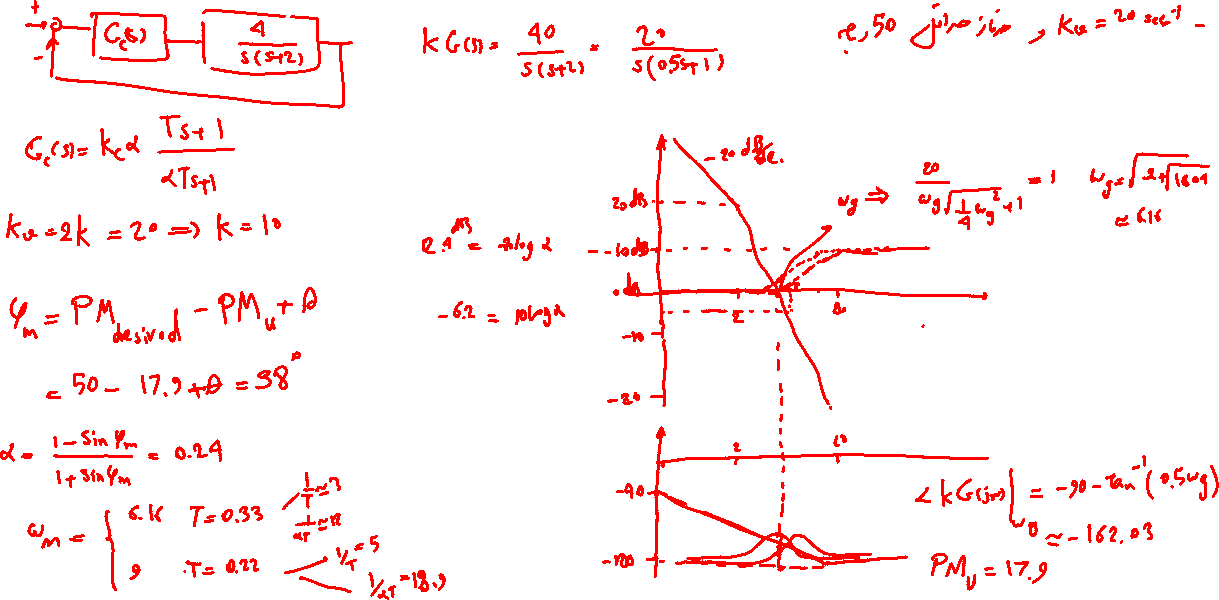 +
-
G_c(s)
4 / s(s+2)
kG(s) = 40 / s(s+2) = 20 / s(0.5s+1)
50 , k_v = 20 sec^-1 -
G_c(s) = k_c α (Ts+1) / (αTs+1)
k_v = 2k = 20 => k = 10
φ_m = PM_desired - PM_u + θ
= 50 - 17.9 + θ = 38°
α = (1 - sin φ_m) / (1 + sin φ_m) = 0.24
ω_m = { 6.16 T = 0.33 1/T ≈ 3 1/αT ≈ 12
9 T = 0.22 1/T = 5 1/αT = 18.9
-20 dB/dec.
20 dB
10 dB
0 dB
-10
-20
2
12.4 dB = -20 log α
-6.2 = 10 log α
ω_g => 20 / (ω_g √(1/4 ω_g^2 + 1)) = 1
≈ 6.16
2 10
-90
-180
∠kG(jω)|ω_g = -90 - tan^-1(0.5ω_g)
≈ -162.03
PM_u = 17.9